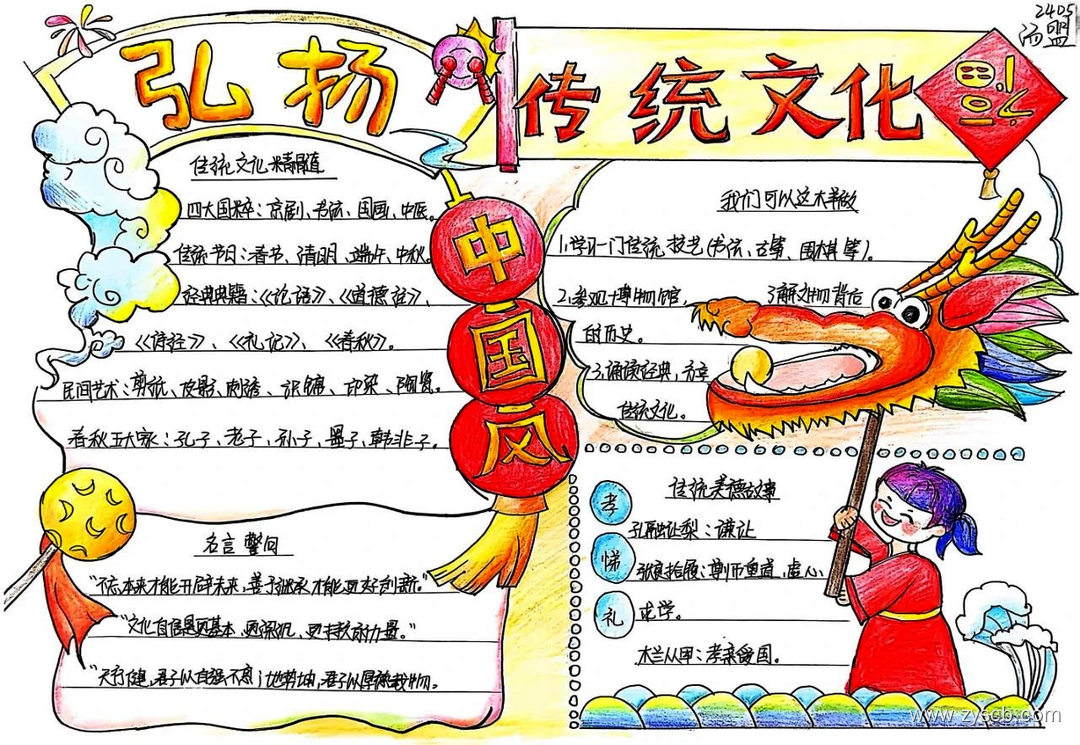 2405
汤盟
弘扬
传统文化
福
中国风
传统文化精髓
四大国粹：京剧、书法、国画、中医。
传统节日：春节、清明、端午、中秋。
经典典籍：《论语》、《道德经》、
《诗经》、《礼记》、《春秋》。
民间艺术：剪纸、皮影、刺绣、泥塑、印染、陶瓷。
春秋五大家：孔子、老子、孙子、墨子、韩非子。
名言警句
“不忘本来才能开辟未来，善于继承才能更好创新。”
“文化自信是更基本、更深沉、更持久的力量。”
“天行健，君子以自强不息；地势坤，君子以厚德载物。
我们可以这样做
1.学习一门传统技艺（书法、古筝、围棋等）。
2.参观博物馆，了解文物背后
的历史。
3.诵读经典，
传统文化。
传统美德故事
孝悌礼
孔融让梨：谦让
张良拾履：尊师重道，虚心
求学。
木兰从军：孝亲爱国。
www.zyscb.com